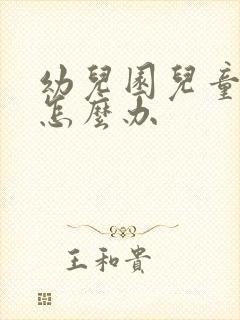 幼兒園兒童
怎麼办
王和貴